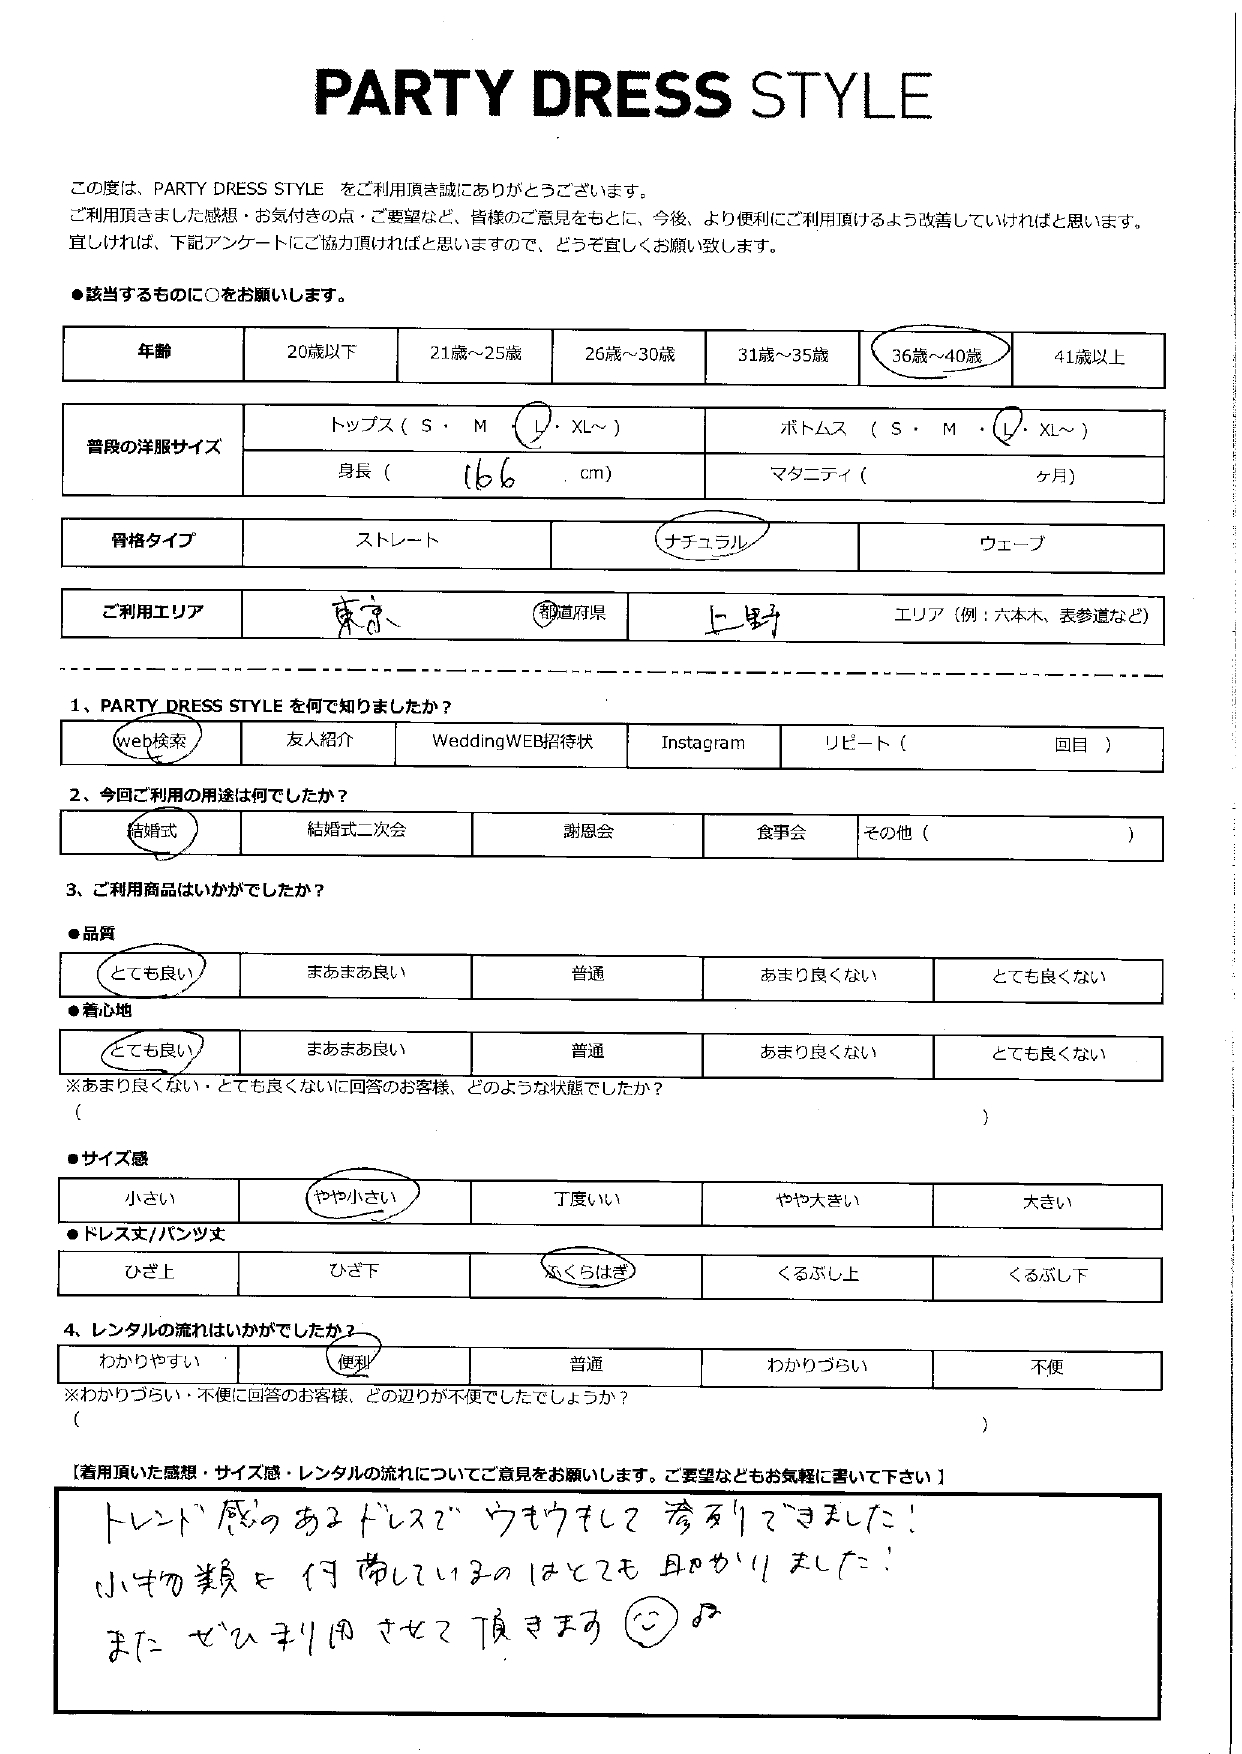 PARTY DRESS STYLE
この度は、PARTY DRESS STYLE をご利用頂き誠にありがとうございます。
ご利用頂きました感想・お気付きの点・ご要望など、皆様のご意見をもとに、今後、より便利にご利用頂けるよう改善していければと思います。
宜しければ、下記アンケートにご協力頂ければと思いますので、どうぞ宜しくお願い致します。
●該当するものに○をお願いします。
年齢 20歳以下 21歳～25歳 26歳～30歳 31歳～35歳 36歳～40歳 41歳以上
普段の洋服サイズ トップス ( S ・ M ・ L ・ XL～ ) ボトムス ( S ・ M ・ L ・ XL～ )
身長 ( 166 cm) マタニティ ( ヶ月)
骨格タイプ ストレート ナチュラル ウェーブ
ご利用エリア 東京 都道府県 上野 エリア (例：六本木、表参道など)
1、PARTY DRESS STYLE を何で知りましたか？
web検索 友人紹介 WeddingWEB招待状 Instagram リピート ( 回目 )
2、今回ご利用の用途は何でしたか？
結婚式 結婚式二次会 謝恩会 食事会 その他 ( )
3、ご利用商品はいかがでしたか？
●品質
とても良い まあまあ良い 普通 あまり良くない とても良くない
●着心地
とても良い まあまあ良い 普通 あまり良くない とても良くない
※あまり良くない・とても良くないに回答のお客様、どのような状態でしたか？
( )
●サイズ感
小さい やや小さい 丁度いい やや大きい 大きい
●ドレス丈/パンツ丈
ひざ上 ひざ下 ふくらはぎ くるぶし上 くるぶし下
4、レンタルの流れはいかがでしたか？
わかりやすい 便利 普通 わかりづらい 不便
※わかりづらい・不便に回答のお客様、どの辺りが不便でしたでしょうか？
( )
【着用頂いた感想・サイズ感・レンタルの流れについてご意見をお願いします。ご要望などもお気軽に書いて下さい】
トレンド感のあるドレスでウキウキして参列できました!
小物類も付帯しているのはとても助かりました!
またぜひ利用させて頂きます☺♫